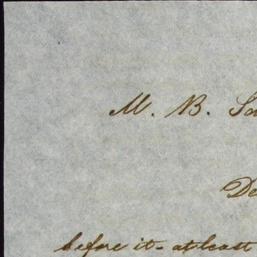 M. B. Sa
De
before it - at least